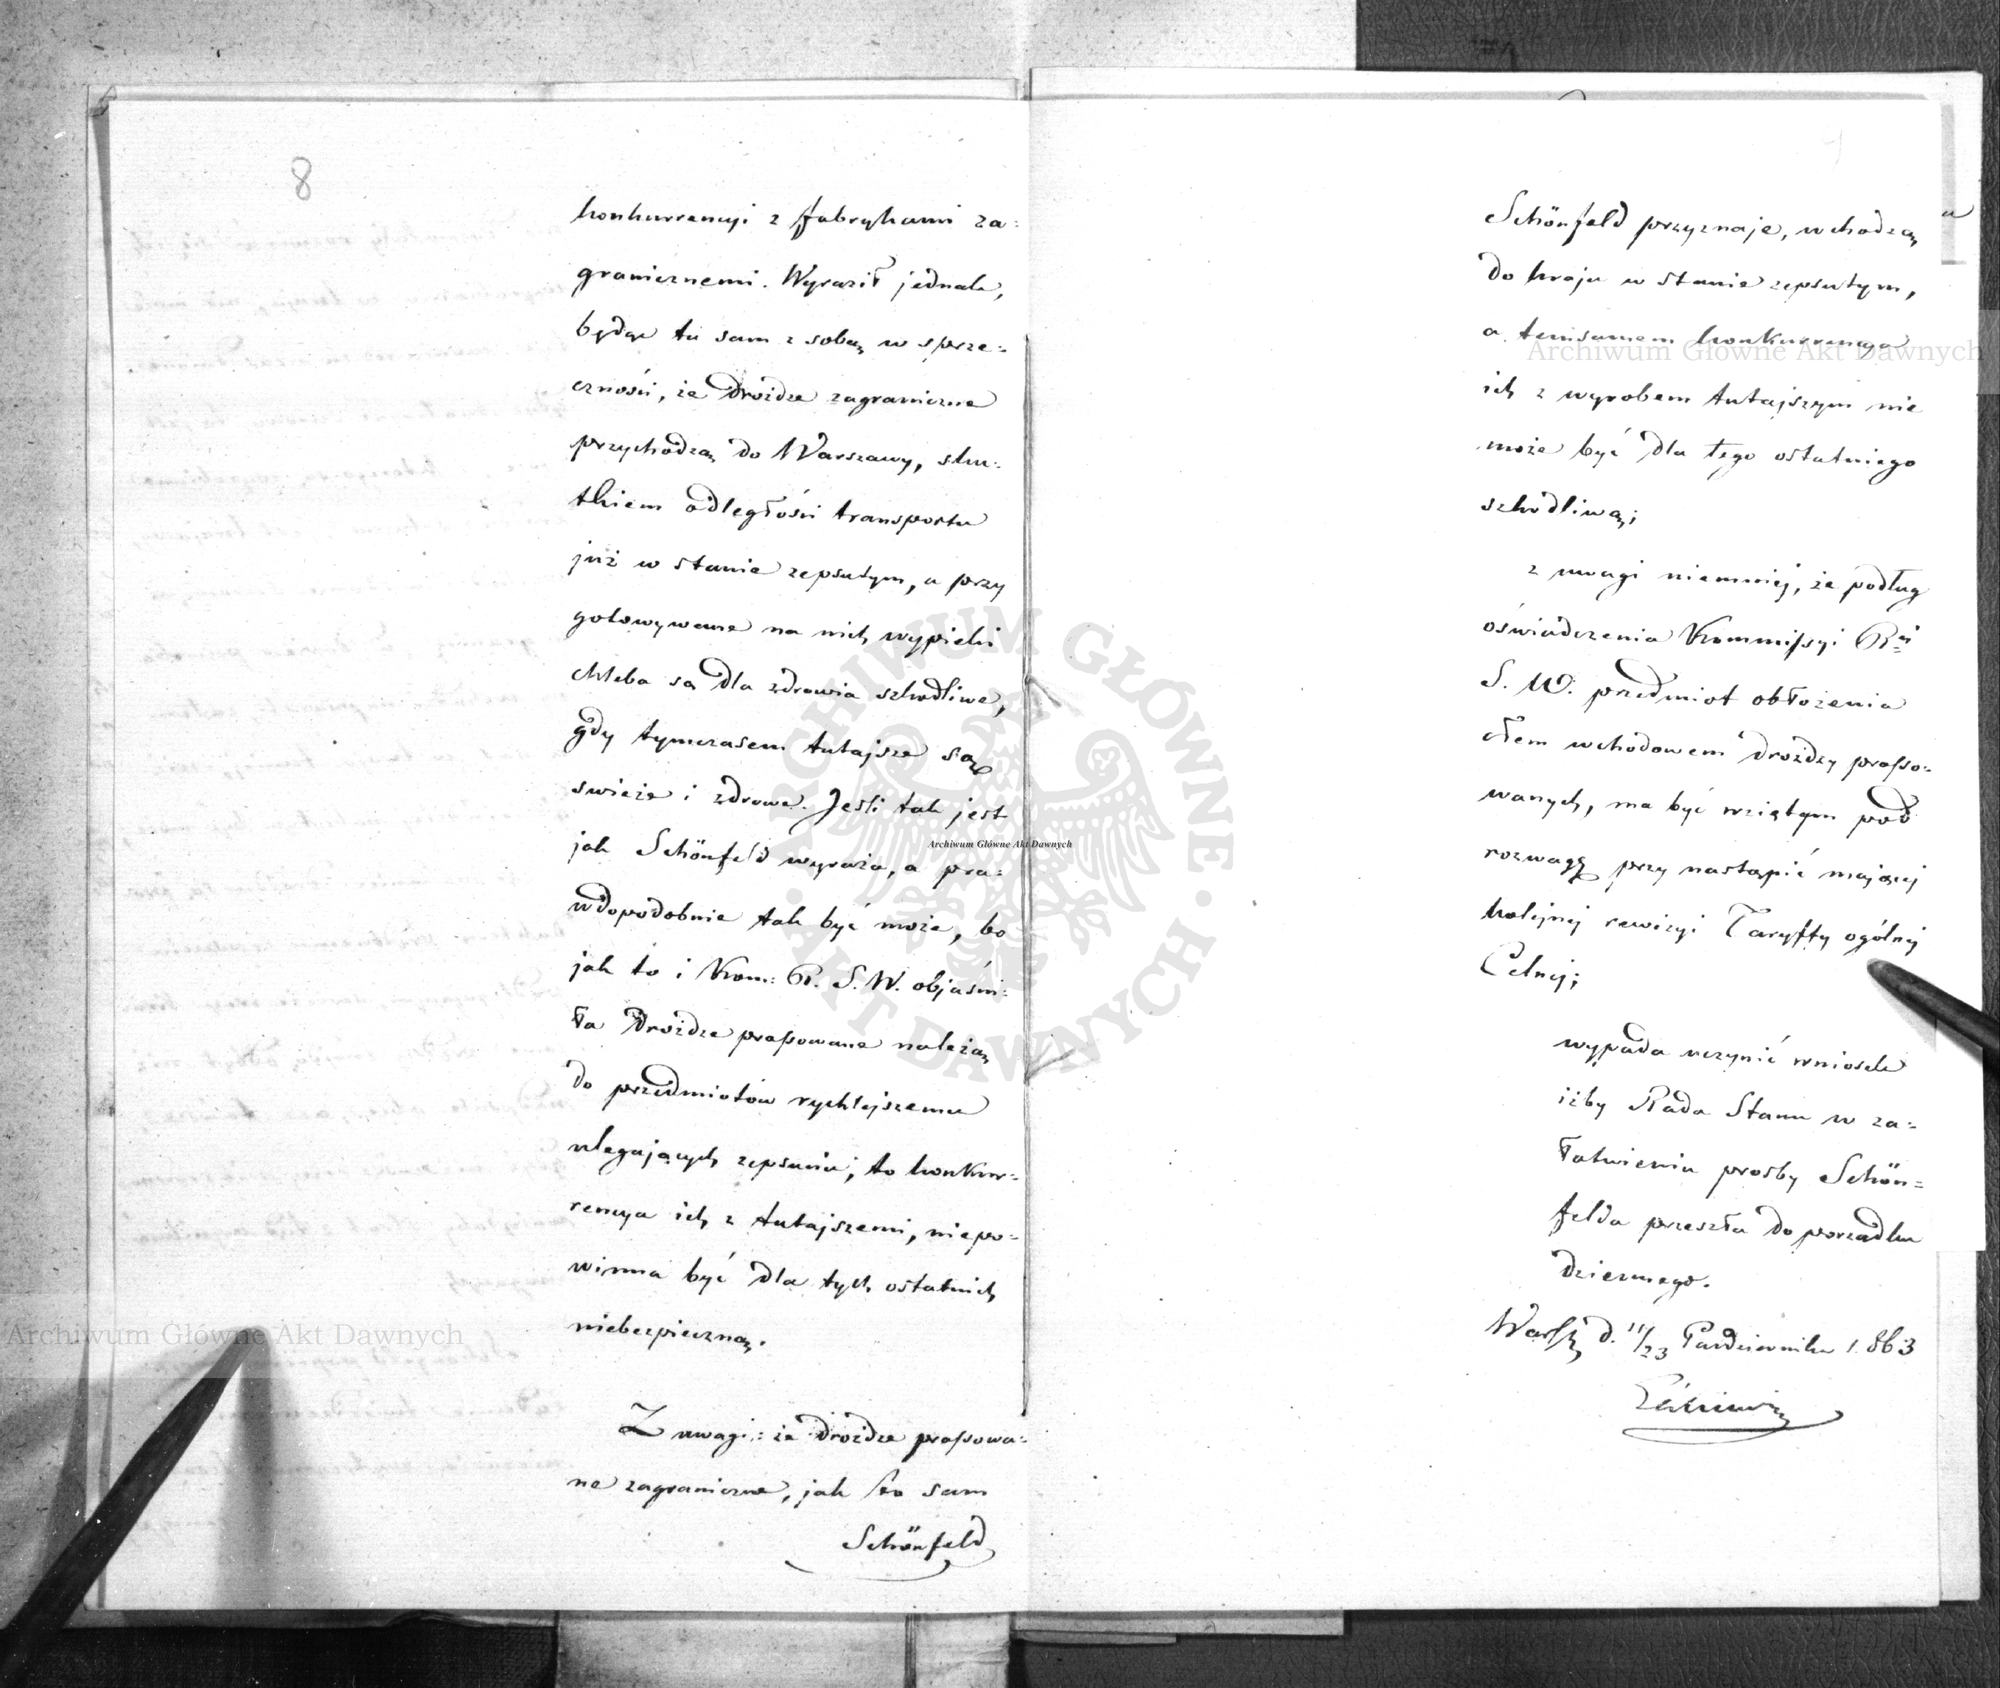 8
konkurrencyi z fabrykami za-
granicznemi. Wyraził jednak,
będąc tu sam z sobą w sprze-
czności, że Drożdże zagraniczne
przychodzą do Warszawy, sku-
tkiem odległości transportu
już w stanie zepsutym, a przy
gotowywane na nich wypieki
chleba są dla zdrowia szkodliwe,
gdy tymczasem tutajsze są
swieże i zdrowe. Jeśli tak jest
jak Schönfeld wyraża, a pra-
wdopodobnie tak być może, bo
jak to i Kom: R. S. W. objaśni-
ła Drożdże prassowane należą
do przedmiotów rychlejszemu
ulegających zepsuciu; to konkur-
rencya ich z tutajszemi, niepo-
winna być dla tych ostatnich
niebezpieczną.
Z uwagi: że Drożdże prassowa-
ne zagraniczne, jak to sam
Schönfeld
Schönfeld przyznaje, wchodzą
do kraju w stanie zepsutym,
a temsamem konkurrencya
ich z wyrobem tutajszym nie
może być dla tego ostatniego
szkodliwą;
z uwagi niemniej, że podług
oświadczenia Kommissyi R^ej
S. W. przedmiot obłożenia
cłem wchodowem drożdży prasso-
wanych, ma być wziętym pod
rozwagę przy nastąpić mającej
kolejnej rewizyi Taryffy ogólnej
Celnej;
wypada uczynić wniosek
iżby Rada Stanu w za-
łatwieniu prosby Schön-
felda przeszła do porządku
dziennego.
Warsz d. 11/23 Października 1863
Archiwum Główne Akt Dawnych
Archiwum Główne Akt Dawnych
Archiwum Główne Akt Dawnych
ARCHIWUM GŁÓWNE · AKT DAWNYCH ·